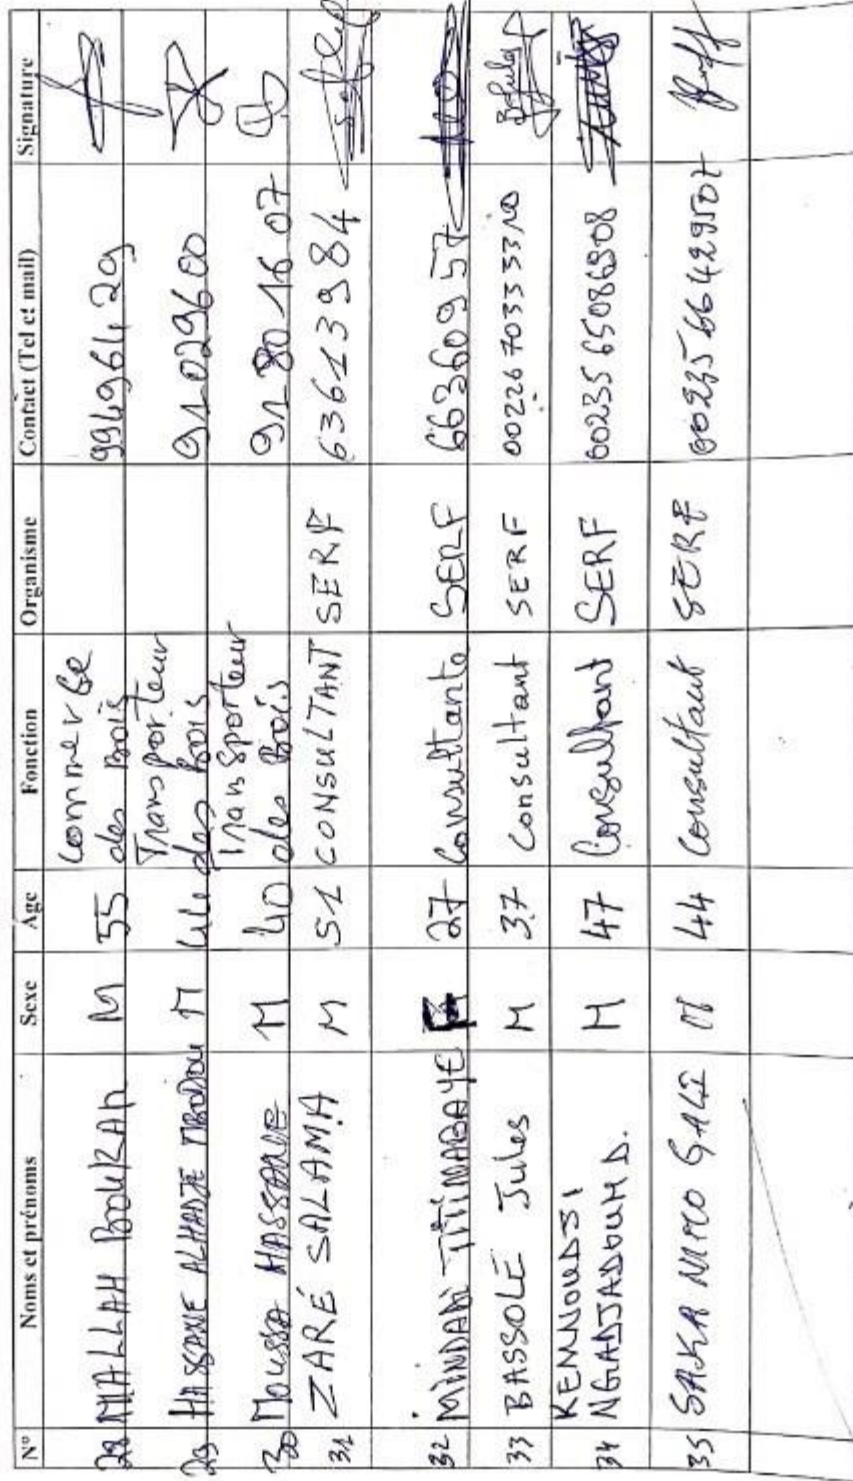 N° Noms et prénoms Sexe Age Fonction Organisme Contact (Tel et mail) Signature
28 MALLAH BOUKAR M 55 Commerce des Bois 99496420
29 HASSANE ALHADJE M 44 Transporteur des Bois 91029600
30 Moussa HASSANE M 40 Transporteur des Bois 91 80 16 07
31 ZARÉ SALAMA M 51 CONSULTANT SERF 63613984
32 MINDADI F 27 Consultante SERF 66360957
33 BASSOLÉ Jules M 37 Consultant SERF 00226 70333310
34 KEMNOUDJI
NGADJADOUM D. M 47 Consultant SERF 00235 65086908
35 SAKA NIMO GALI M 44 Consultant SERF 00235 66429507